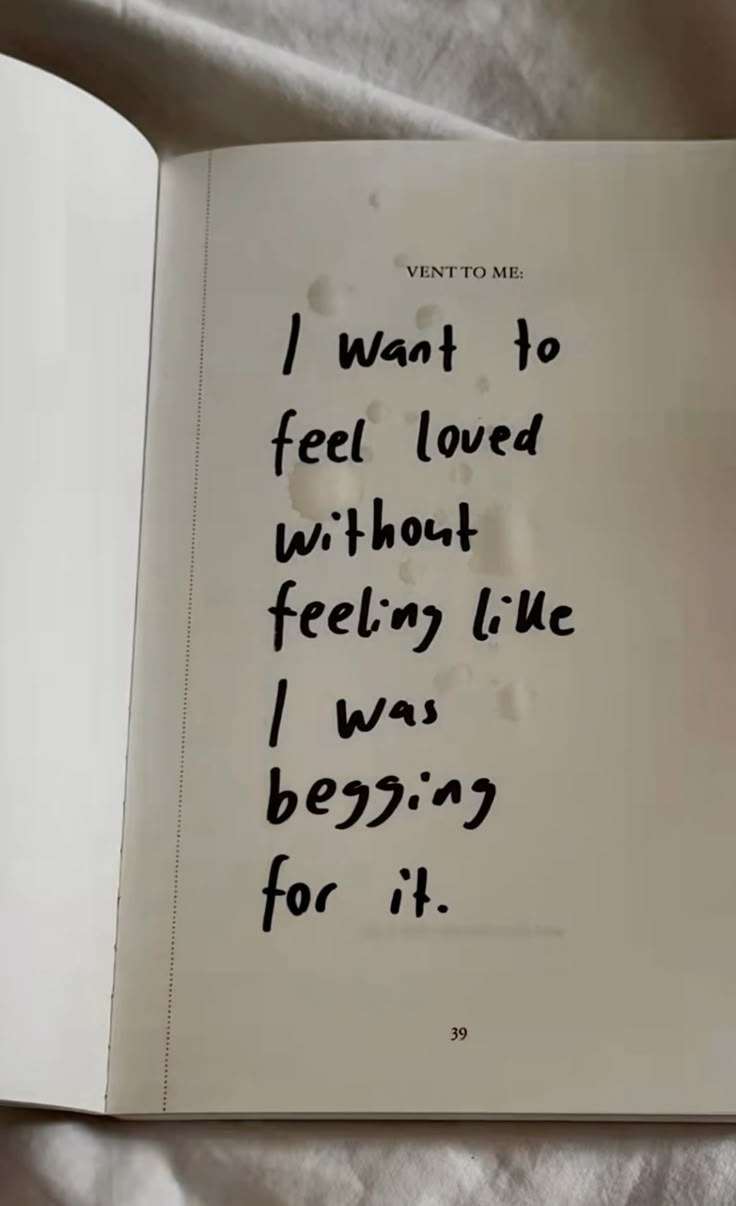 VENT TO ME:
I want to
feel loved
without
feeling like
I was
begging
for it.
39